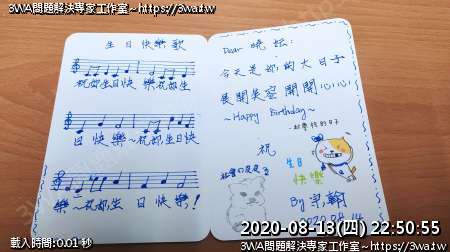 3WA問題解決專家工作室~https://3wa.tw
生日快樂歌
祝你生日快 樂祝你生
日 快樂~祝你生日快
樂~祝你生 日快樂!
Dear 曉
今天是妳的大日子
展開笑容 開開心心
~Happy Birthday~
祝
生日
快樂
By
2020.08.14
2020-08-13(四) 22:50:55
載入時間:0.01 秒
3WA問題解決專家工作室~https://3wa.tw